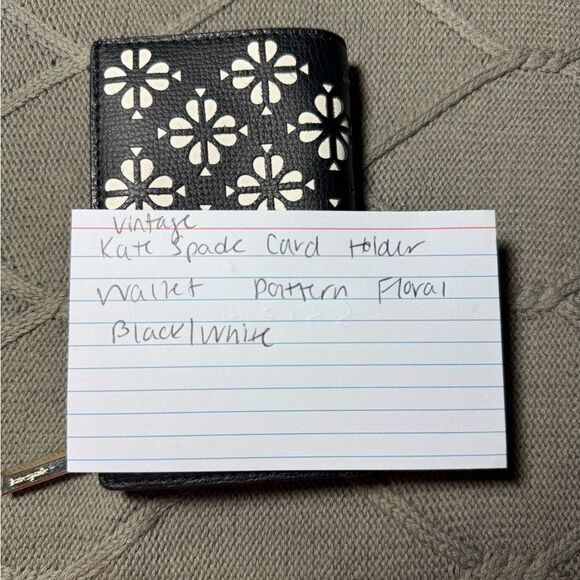 Vintage
Kate Spade Card Holder
Wallet Pattern Floral
Black/White